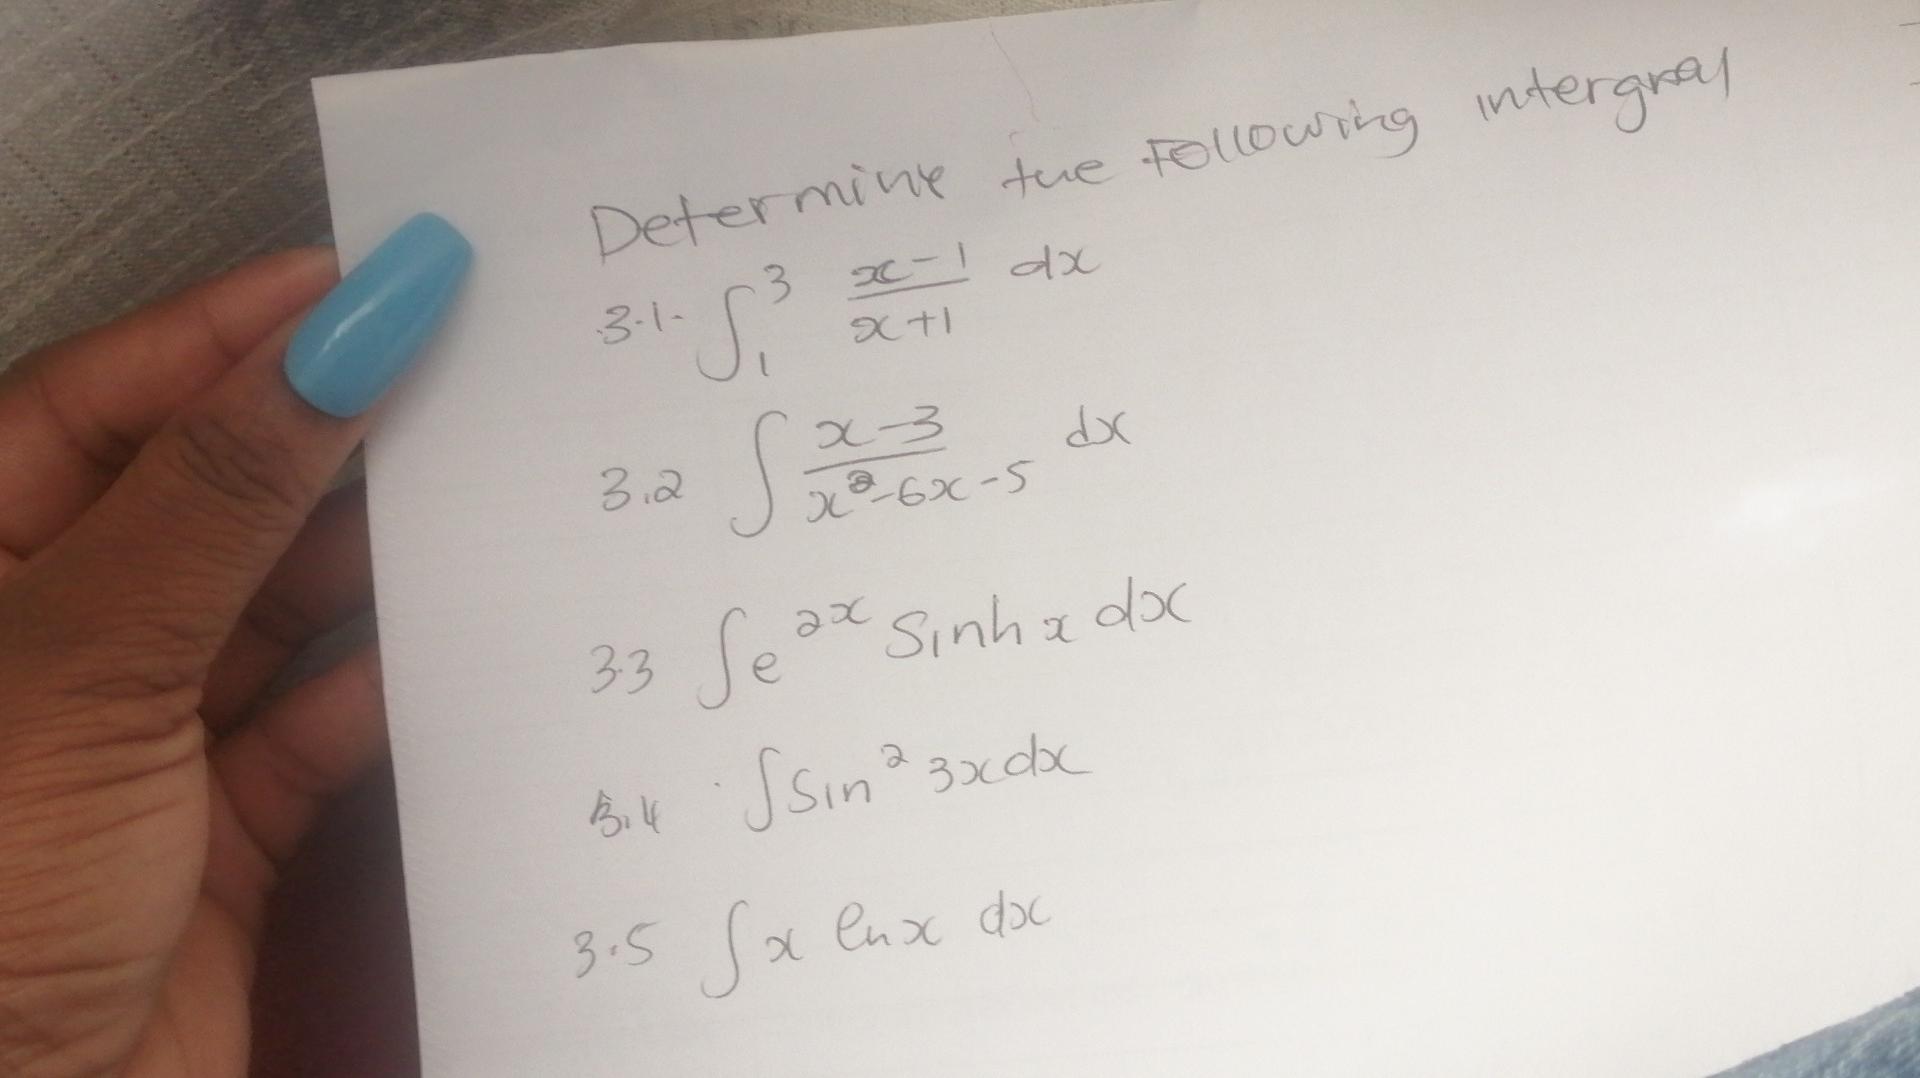 Determine the Following intergral
3.1. ∫₁³ x-1/x+1 dx
3.2 ∫ x-3/x²-6x-5 dx
3.3 ∫e²ˣ Sinh x dx
3.4 ∫Sin² 3x dx
3.5 ∫x ln x dx